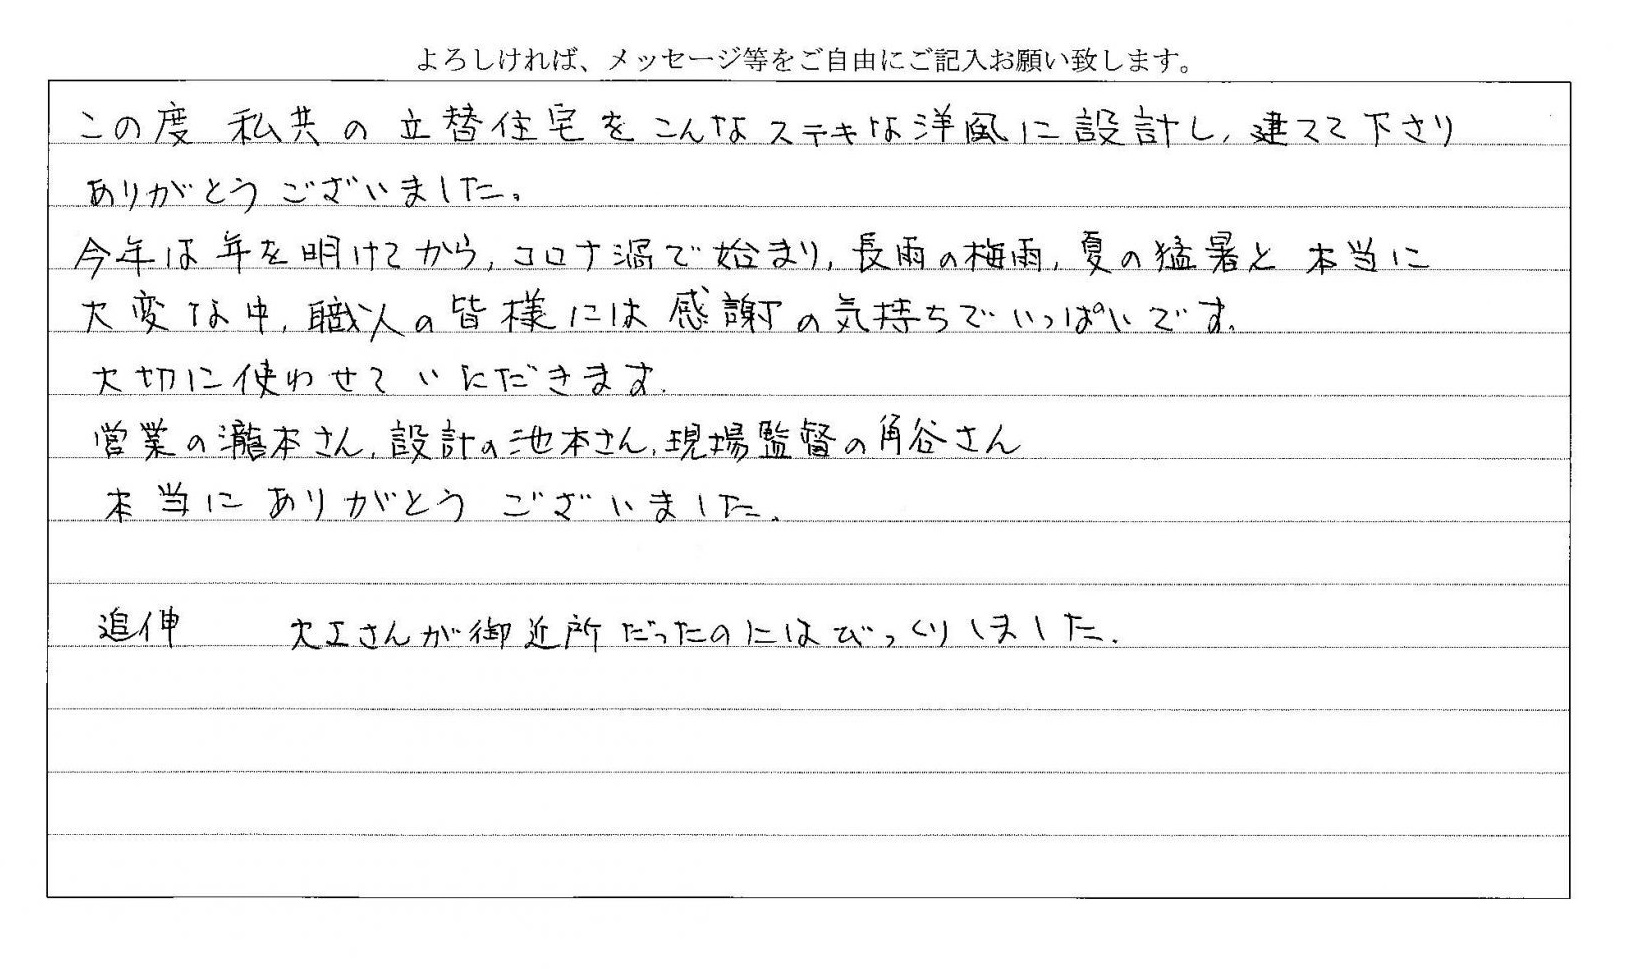 よろしければ、メッセージ等をご自由にご記入お願い致します。
この度 私共の 立替住宅をこんなステキな洋風に設計し、建てて下さり
ありがとうございました。
今年は年を明けてから、コロナ渦で始まり、長雨の梅雨、夏の猛暑と 本当に
大変な中、職人の皆様には感謝の気持ちでいっぱいです。
大切に使わせていただきます。
営業の瀧本さん、設計の池本さん、現場監督の角谷さん
本当にありがとうございました。
追伸 大工さんが御近所だったのにはびっくりしました。